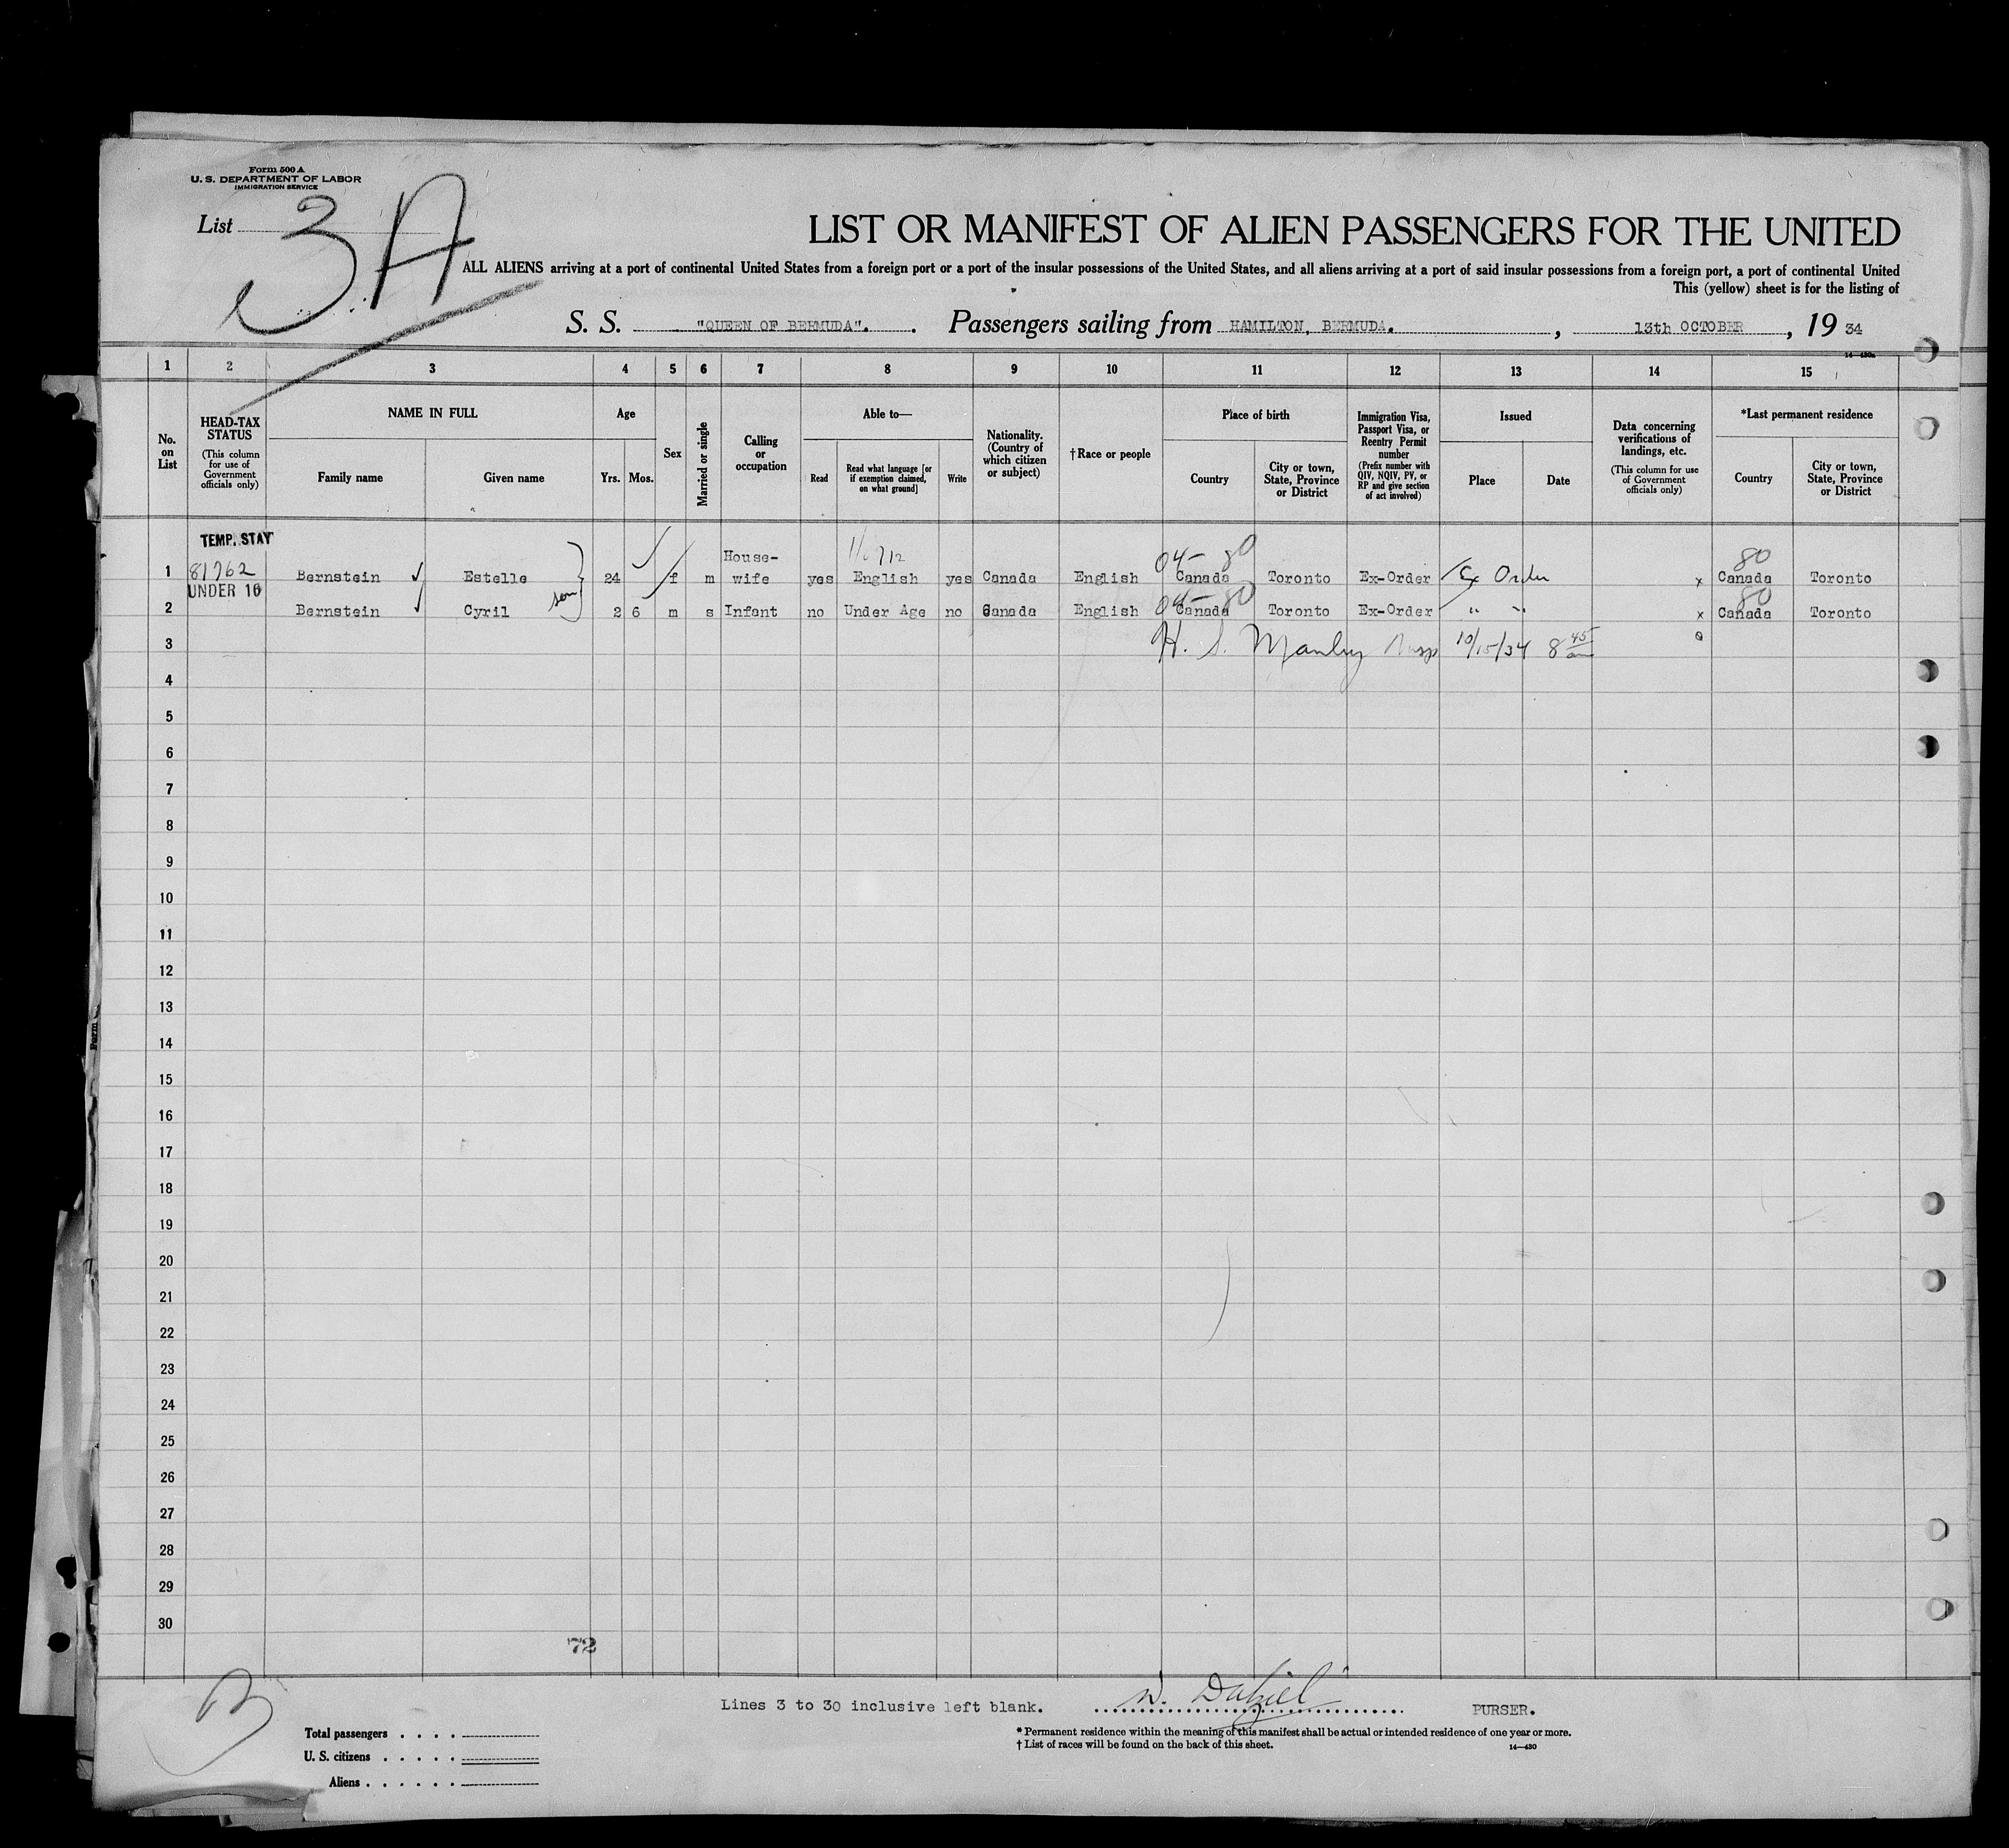 Form 500 A
U. S. DEPARTMENT OF LABOR
IMMIGRATION SERVICE
List 3A
LIST OR MANIFEST OF ALIEN PASSENGERS FOR THE UNITED
ALL ALIENS arriving at a port of continental United States from a foreign port or a port of the insular possessions of the United States, and all aliens arriving at a port of said insular possessions from a foreign port, a port of continental United
This (yellow) sheet is for the listing of
S. S. "QUEEN OF BERMUDA". . Passengers sailing from HAMILTON, BERMUDA. , 13th OCTOBER , 19 34
14—430a
1 2 3 4 5 6 7 8 9 10 11 12 13 14 15
No. on List
HEAD-TAX STATUS (This column for use of Government officials only)
NAME IN FULL
Family name
Given name
Age
Yrs. Mos.
Sex
Married or single
Calling or occupation
Able to—
Read
Read what language [or if exemption claimed, on what ground]
Write
Nationality. (Country of which citizen or subject)
†Race or people
Place of birth
Country
City or town, State, Province or District
Immigration Visa, Passport Visa, or Reentry Permit number (Prefix number with QIV, NQIV, PV, or RP and give section of act involved)
Issued
Place
Date
Data concerning verifications of landings, etc. (This column for use of Government officials only)
*Last permanent residence
Country
City or town, State, Province or District
TEMP. STAY
House-
04- 80 80
1 81762 Bernstein Estelle 24 f m wife yes English yes Canada English Canada Toronto Ex-Order Ex Order x Canada Toronto
UNDER 16 son 04-80 80
2 Bernstein Cyril 2 6 m s Infant no Under Age no Canada English Canada Toronto Ex-Order " " x Canada Toronto
3 H. S. Manley Insp 10/15/34 8 45 am
4
5
6
7
8
9
10
11
12
13
14
15
16
17
18
19
20
21
22
23
24
25
26
27
28
29
30
72
Lines 3 to 30 inclusive left blank. PURSER.
Total passengers
U. S. citizens
Aliens
* Permanent residence within the meaning of this manifest shall be actual or intended residence of one year or more.
† List of races will be found on the back of this sheet.
14—430